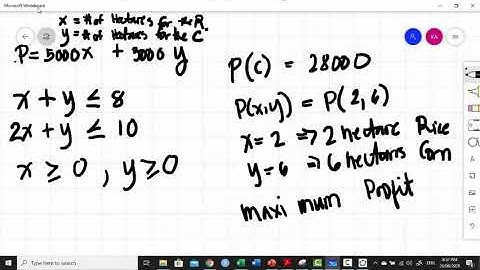 Microsoft Whiteboard
x = # of Hectares for the R.
y = # of Hectares for the C.
P = 5000x + 3000y
x + y ≤ 8
2x + y ≤ 10
x ≥ 0 , y ≥ 0
P(C) = 28000
P(x,y) = P(2,6)
x = 2 ⇒ 2 hectare Rice
y = 6 ⇒ 6 hectares Corn
maximum Profit
KA
Type here to search
ENG